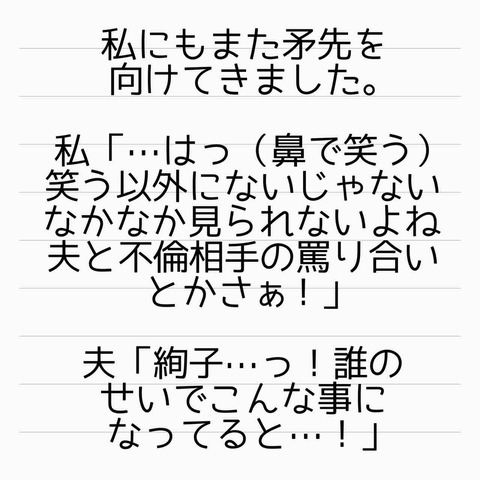 私にもまた矛先を
向けてきました。
私「…はっ（鼻で笑う）
笑う以外にないじゃない
なかなか見られないよね
夫と不倫相手の罵り合い
とかさぁ！」
夫「絢子…っ！誰の
せいでこんな事に
なってると…！」